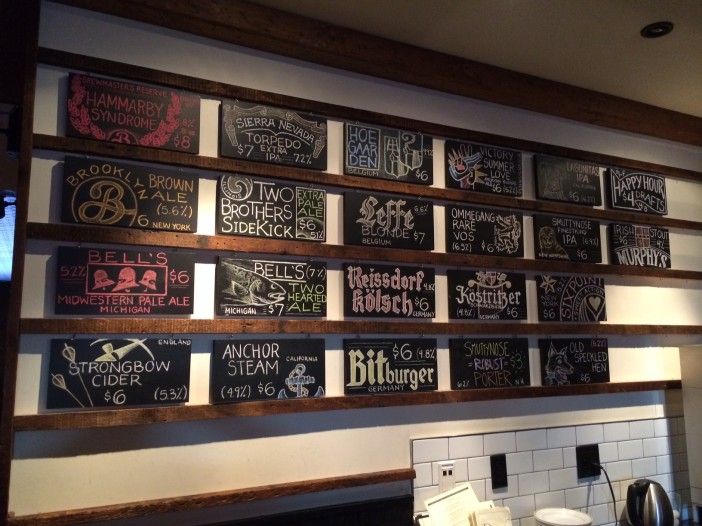 BREWMASTER'S RESERVE
HAMMARBY
SYNDROME
$8
SIERRA NEVADA
TORPEDO
EXTRA
$7 IPA 7.2%
HOE
GAAR
DEN
$6
BELGIUM
VICTORY
SUMMER
LOVE
LAGUNITAS
IPA
HAPPY HOUR
$4 DRAFTS
BROOKLYN
BROWN
ALE
(5.6%)
$6 NEW YORK
TWO
BROTHERS
SIDEKICK
EXTRA
PALE
ALE
$6
5.1%
Leffe
BLONDE $7
BELGIUM
OMMEGANG
RARE
VOS
(6.5%) $6
SMUTTYNOSE
FINESTKIND
IPA
IRISH STOUT
MURPHY'S
5.2% BELL'S $6
MIDWESTERN PALE ALE
MICHIGAN
BELL'S (7%)
TWO
HEARTED
ALE
MICHIGAN $7
Reissdorf
Kölsch $6
GERMANY
Köstritzer
(4.8%) $6
GERMANY
NEW
YORK
$6
SIXPOINT
ENGLAND
STRONGBOW
CIDER
$6 (5.3%)
ANCHOR
STEAM CALIFORNIA
(4.9%) $6
$6 (4.8%)
Bitburger
GERMANY
SMUTTYNOSE $8
ROBUST
PORTER
N.H.
OLD
SPECKLED
HEN
$6